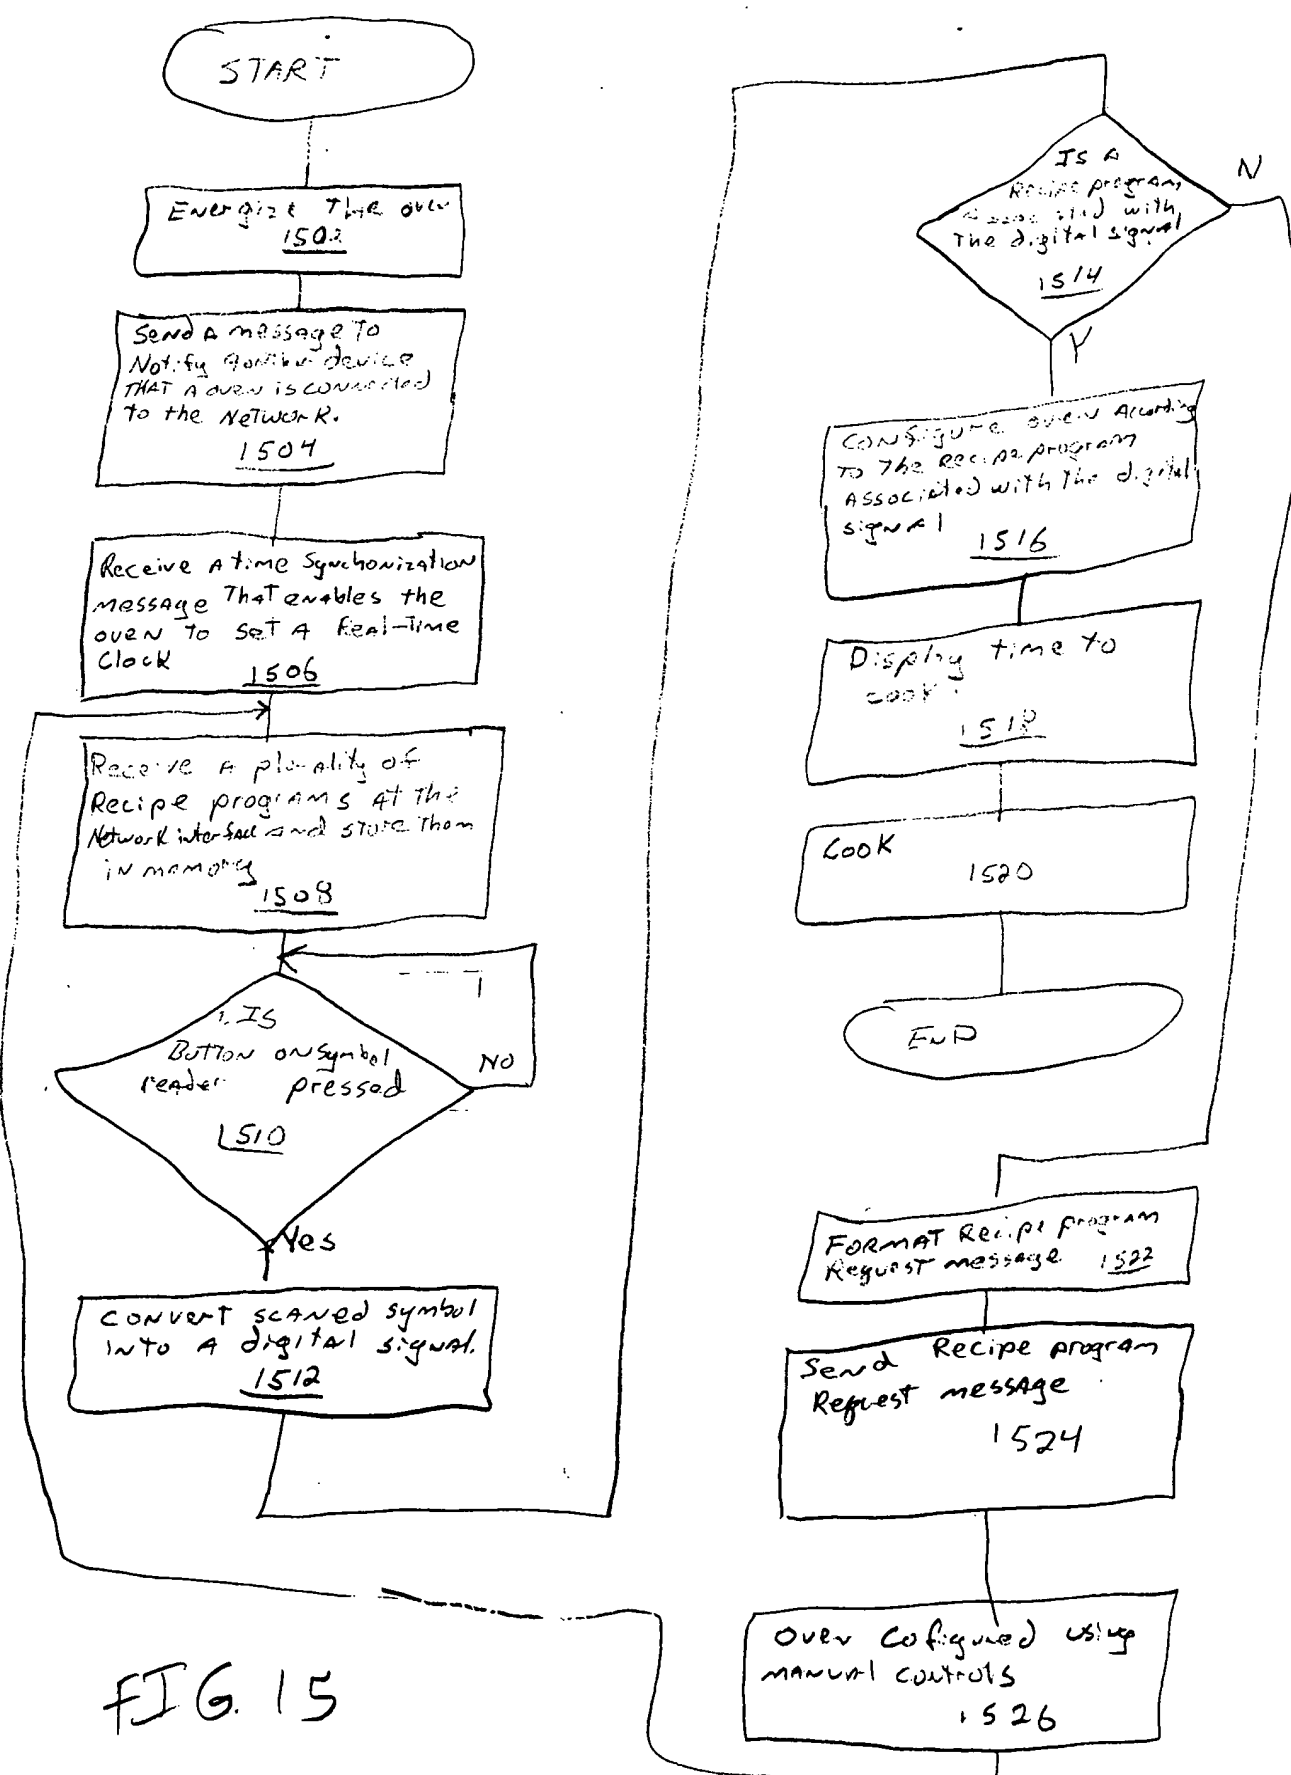 START
Energize The oven
1502
Send A message To
Notify device
THAT A oven is connected
to the NetworK.
1504
Receive A time Synchonization
message That enables the
oven to set A Real-Time
Clock
1506
Receive A plurality of
Recipe programs At The
Network interface and store Them
in memory
1508
Is
Button on symbol
reader pressed
NO
1510
Yes
Convert scaned symbol
into A digital signal.
1512
Is A
Recipe program
Associated with
The digital signal
1514
N
Y
Configure oven According
To The Recipe program
Associated with The digital
signal
1516
Display time to
cook.
1518
Cook
1520
End
FORMAT Recipe program
Request message 1522
Send Recipe program
Request message
1524
Oven Cofigured using
MANUAl controls
1526
FIG. 15